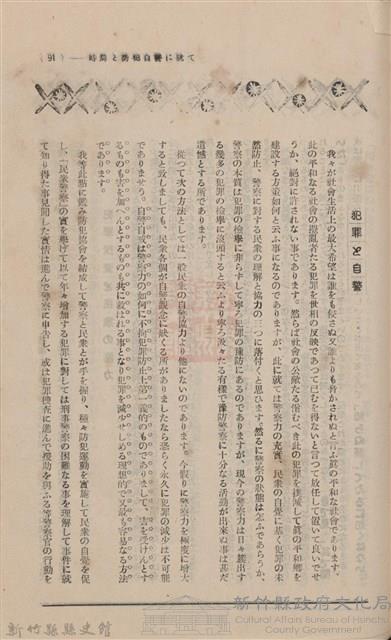 (91) — 時局と防犯自警に就て
犯罪と自警
我々が社會生活上の最大希望は誰をも侵さぬ又誰よりも脅かされぬと云ふ眞の平和な社會であります。
此の平和なる社會の擾亂者たる犯罪を世相の反映であつて已むを得ないと言つて放任して置いて良いでせ
うか、絶對に許されない事であります。然らば社會の公敵たる憎むべき此の犯罪を撲滅して眞の平和郷を
建設する方策如何と云ふ事になるのでありますが、此に就ては警察力の充實、民衆の自覺に基く犯罪の未
然防止、警察に對する民衆の理解と協力の二つに落付くと思ひます。然るに警察の狀態は怎ふであらうか、
警察の本質は犯罪の檢擧に非らずして寧ろ犯罪の豫防にあるのでありますが、現今の警察力は日々簇出す
る幾多の犯罪の檢擧に沒頭すると云ふより寧ろ汲々たる有樣で豫防警察に十分なる活動が出來ぬ事は甚だ
遺憾とする所であります。
從つて次の方法としては一般民衆の自警協力より他にないのであります。今假りに警察力を極度に增大
すると致しましても、民衆各個が自警觀念に缺くる所がありましたなら恐らく永久に犯罪の減少は不可能
でありませう。自警自戒は警察力の如何に不拘犯罪防止上第一義的のものでありまして、害を受けんとす
るものも害を加へんとするものも共に救はれる事となり犯罪を減少せしめる理想的で又最も容易なる方法
であります。
我等此點に鑑み防犯協會を結成して警察と民衆とが手を握り、種々防犯運動を實施して民衆の自覺を促
し、「民衆警察」の實を擧げて以て年々增加する犯罪に對しては刑事警察の困難なる事を理解して事件に就
て知り得た事見聞した實情は進んで警察に申告し、或は犯罪搜査に進んで援助を與ふる等警察官の行動を
新竹縣縣史館
新竹縣政府文化局
Cultural Affairs Bureau of Hsinchu
County Government